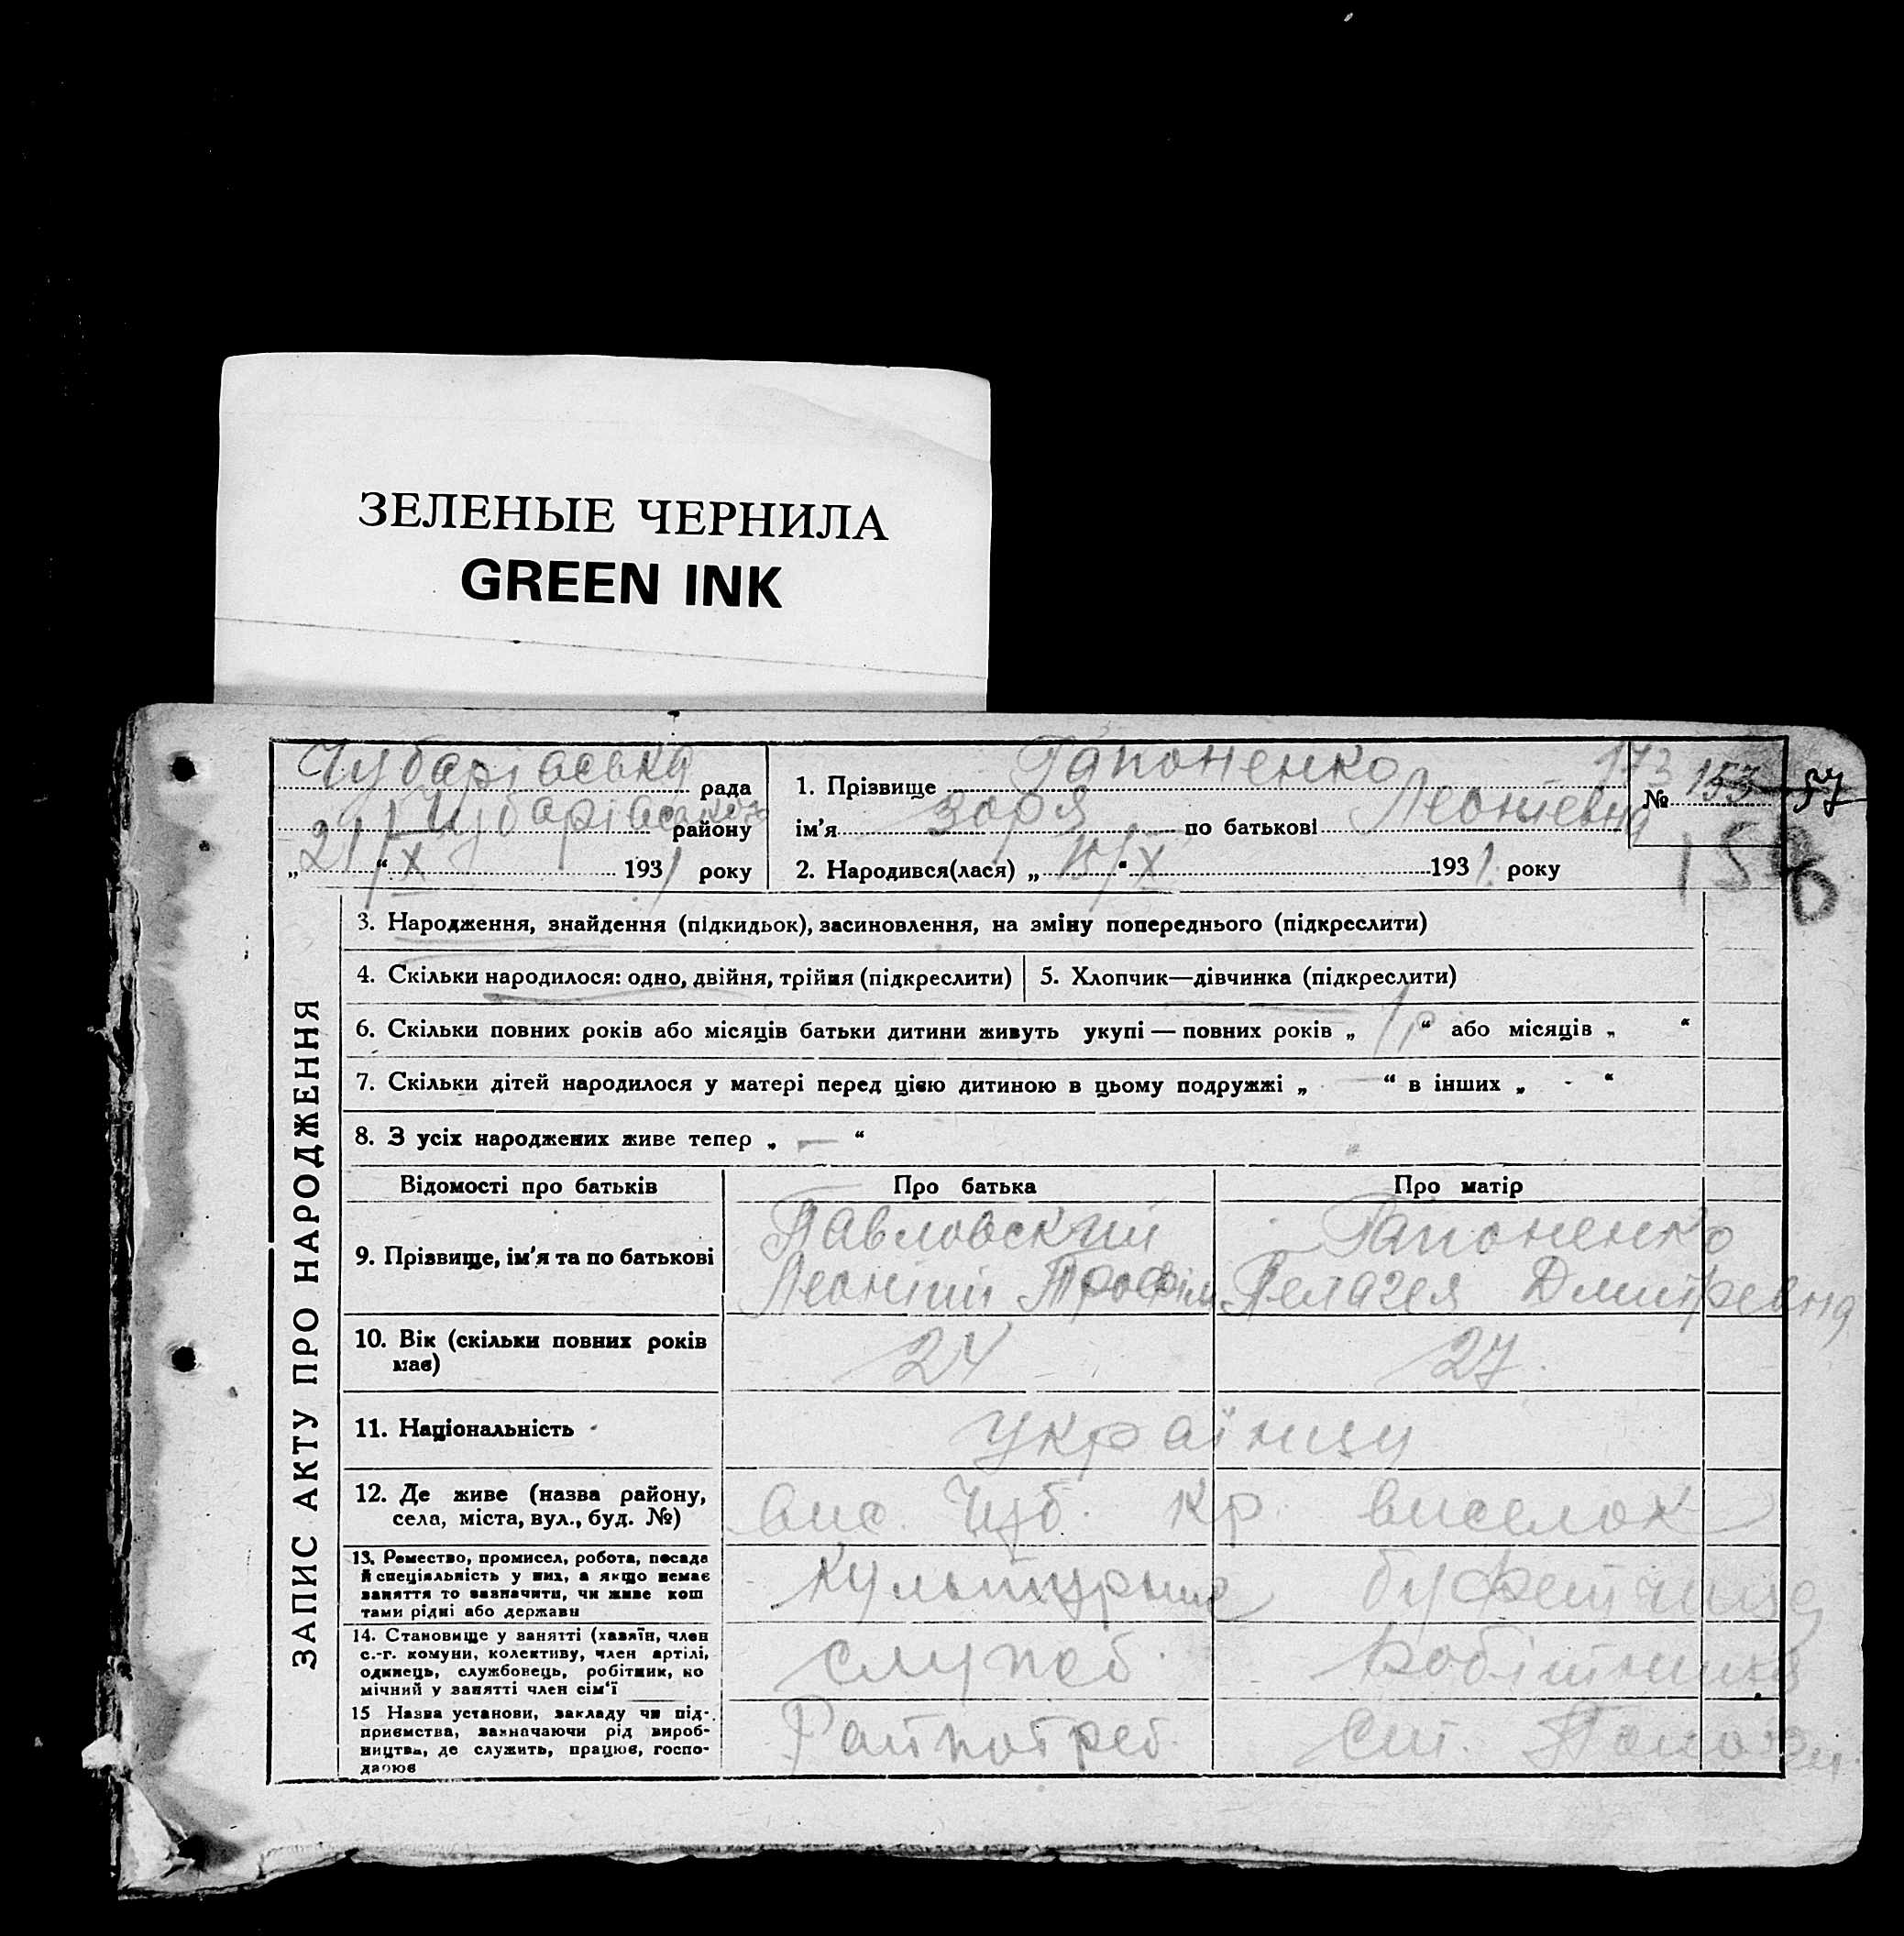 ЗЕЛЕНЫЕ ЧЕРНИЛА
GREEN INK
Чубарівська рада
Чубарівського району
„21/“ X 1931 року
1. Прізвище Гапоненко
173
№ 153 57
158
ім'я Зоря по батькові Леонтевна
2. Народився(лася) „15/“ X 1931 року
ЗАПИС АКТУ ПРО НАРОДЖЕННЯ
3. Народження, знайдення (підкидьок), засиновлення, на зміну попереднього (підкреслити)
4. Скільки народилося: одно, двійня, трійня (підкреслити)
5. Хлопчик—дівчинка (підкреслити)
6. Скільки повних років або місяців батьки дитини живуть укупі — повних років „ 1 р “ або місяців „ “
7. Скільки дітей народилося у матері перед цією дитиною в цьому подружжі „ — “ в інших „ - “
8. З усіх народжених живе тепер „ — “
Відомості про батьків Про батька Про матір
9. Прізвище, ім'я та по батькові
Павловский
Леонтий Трофім
Гапоненко
Пелагея Дмитревна
10. Вік (скільки повних років
має)
24 27
11. Національність
Українци
12. Де живе (назва району,
села, міста, вул., буд. №)
вис. Чуб. Кр. виселок
13. Ремество, промисел, робота, посада
й спеціяльність у них, а якщо немає
заняття то зазначити, чи живе кош
тами рідні або держави
Культурник буфетчица
14. Становище у занятті (хазяїн, член
с.-г. комуни, колективу, член артілі,
одинець, службовець, робітник, по
мічний у занятті член сім'ї
служб. Робітниця
15 Назва установи, закладу чи під-
приємства, зазначаючи рід вироб-
ництва, де служить, працює, госпо-
дарює
Райпотреб. Ст.